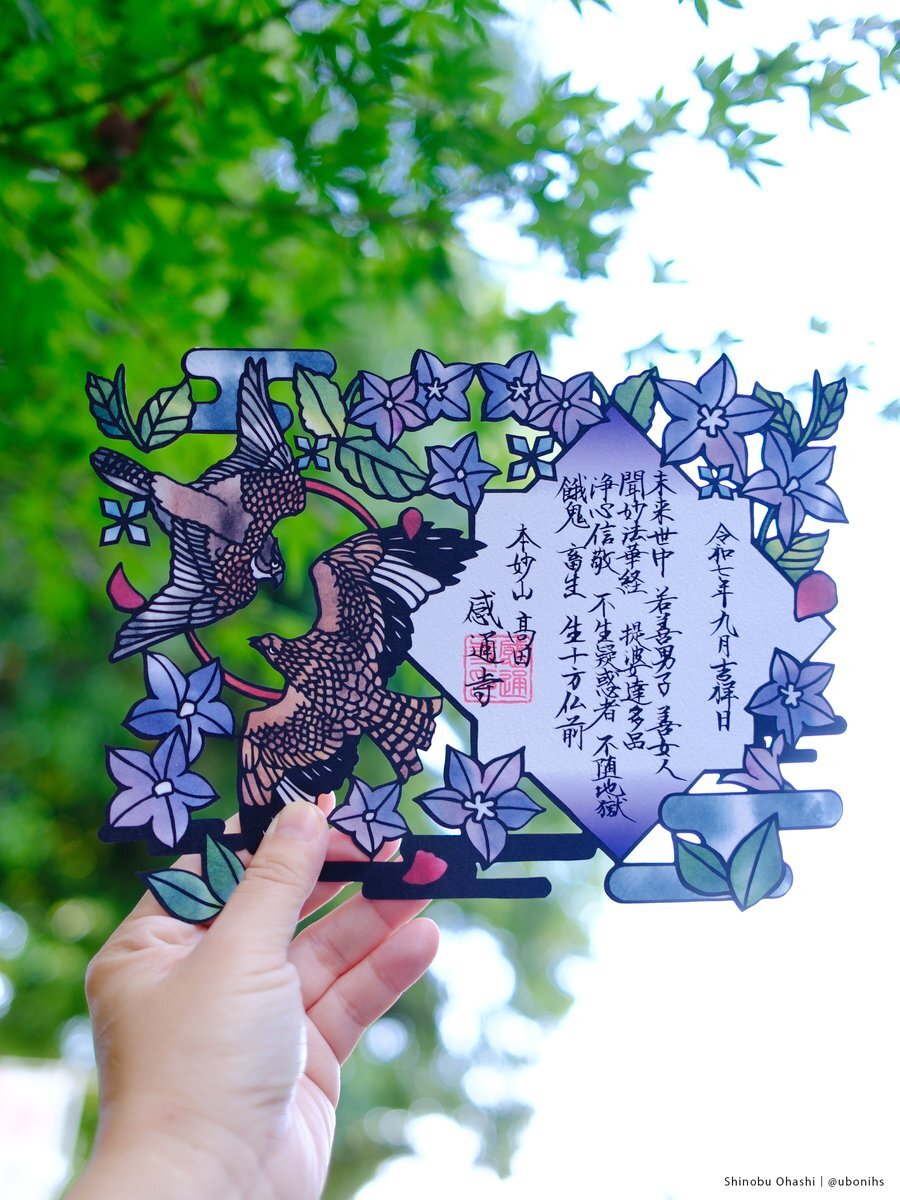 令和七年九月吉祥日
未来世中 若善男子 善女人
聞妙法華経 提婆達多品
浄心信敬 不生疑惑者 不随地獄
餓鬼 畜生 生十方仏前
本妙山 髙田
感通寺
Shinobu Ohashi | @ubonihs